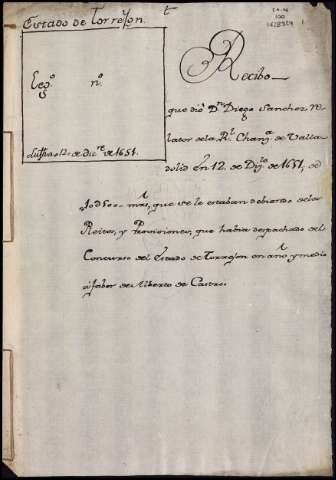 Estado de Torrejon.
t
Leg.º n.º
Su fha 12,, de Dic.re de 1651.
Recibo
que dió Dn. Diego Sanchez, re-
lator de la Rl. Chanz.a de Valla-
dolid en 12. de Diz.re de 1651, de
mrs, que se le estaban debiendo de los
Reitos, y Provisiones, que habia despachado del
Concurso del Estado de Torrejon en año, y medio
á fabor de Alberto de Castro.